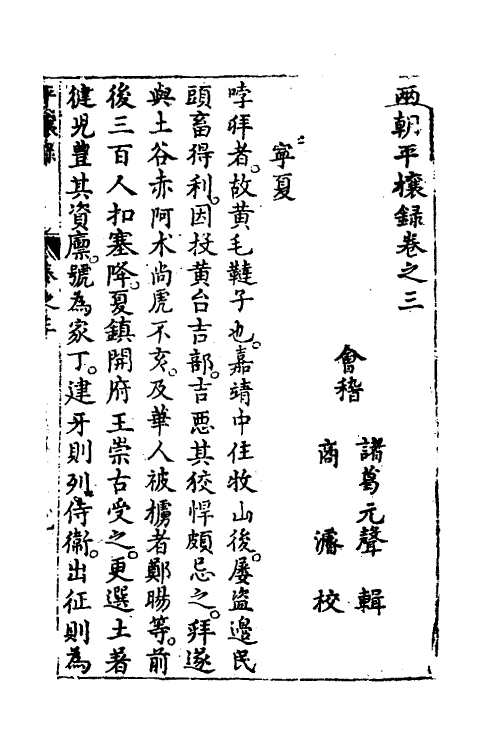 兩朝平攘録卷之三
會稽
諸葛元聲 輯
商 濬 校
寧夏
哱拜者。故黄毛韃子也。嘉靖中住牧山後。屡盗邉民
頭畜得利。因投黄台吉部。吉惡其狡悍頗忌之。拜遂
與土谷赤阿术尚虎不亥。及華人被擄者鄭暘等。前
後三百人扣塞降。夏鎮開府王崇古受之。更選土著
健児豊其資廪。號為家丁。建牙則列侍衛。出征則為
平攘録
卷之三